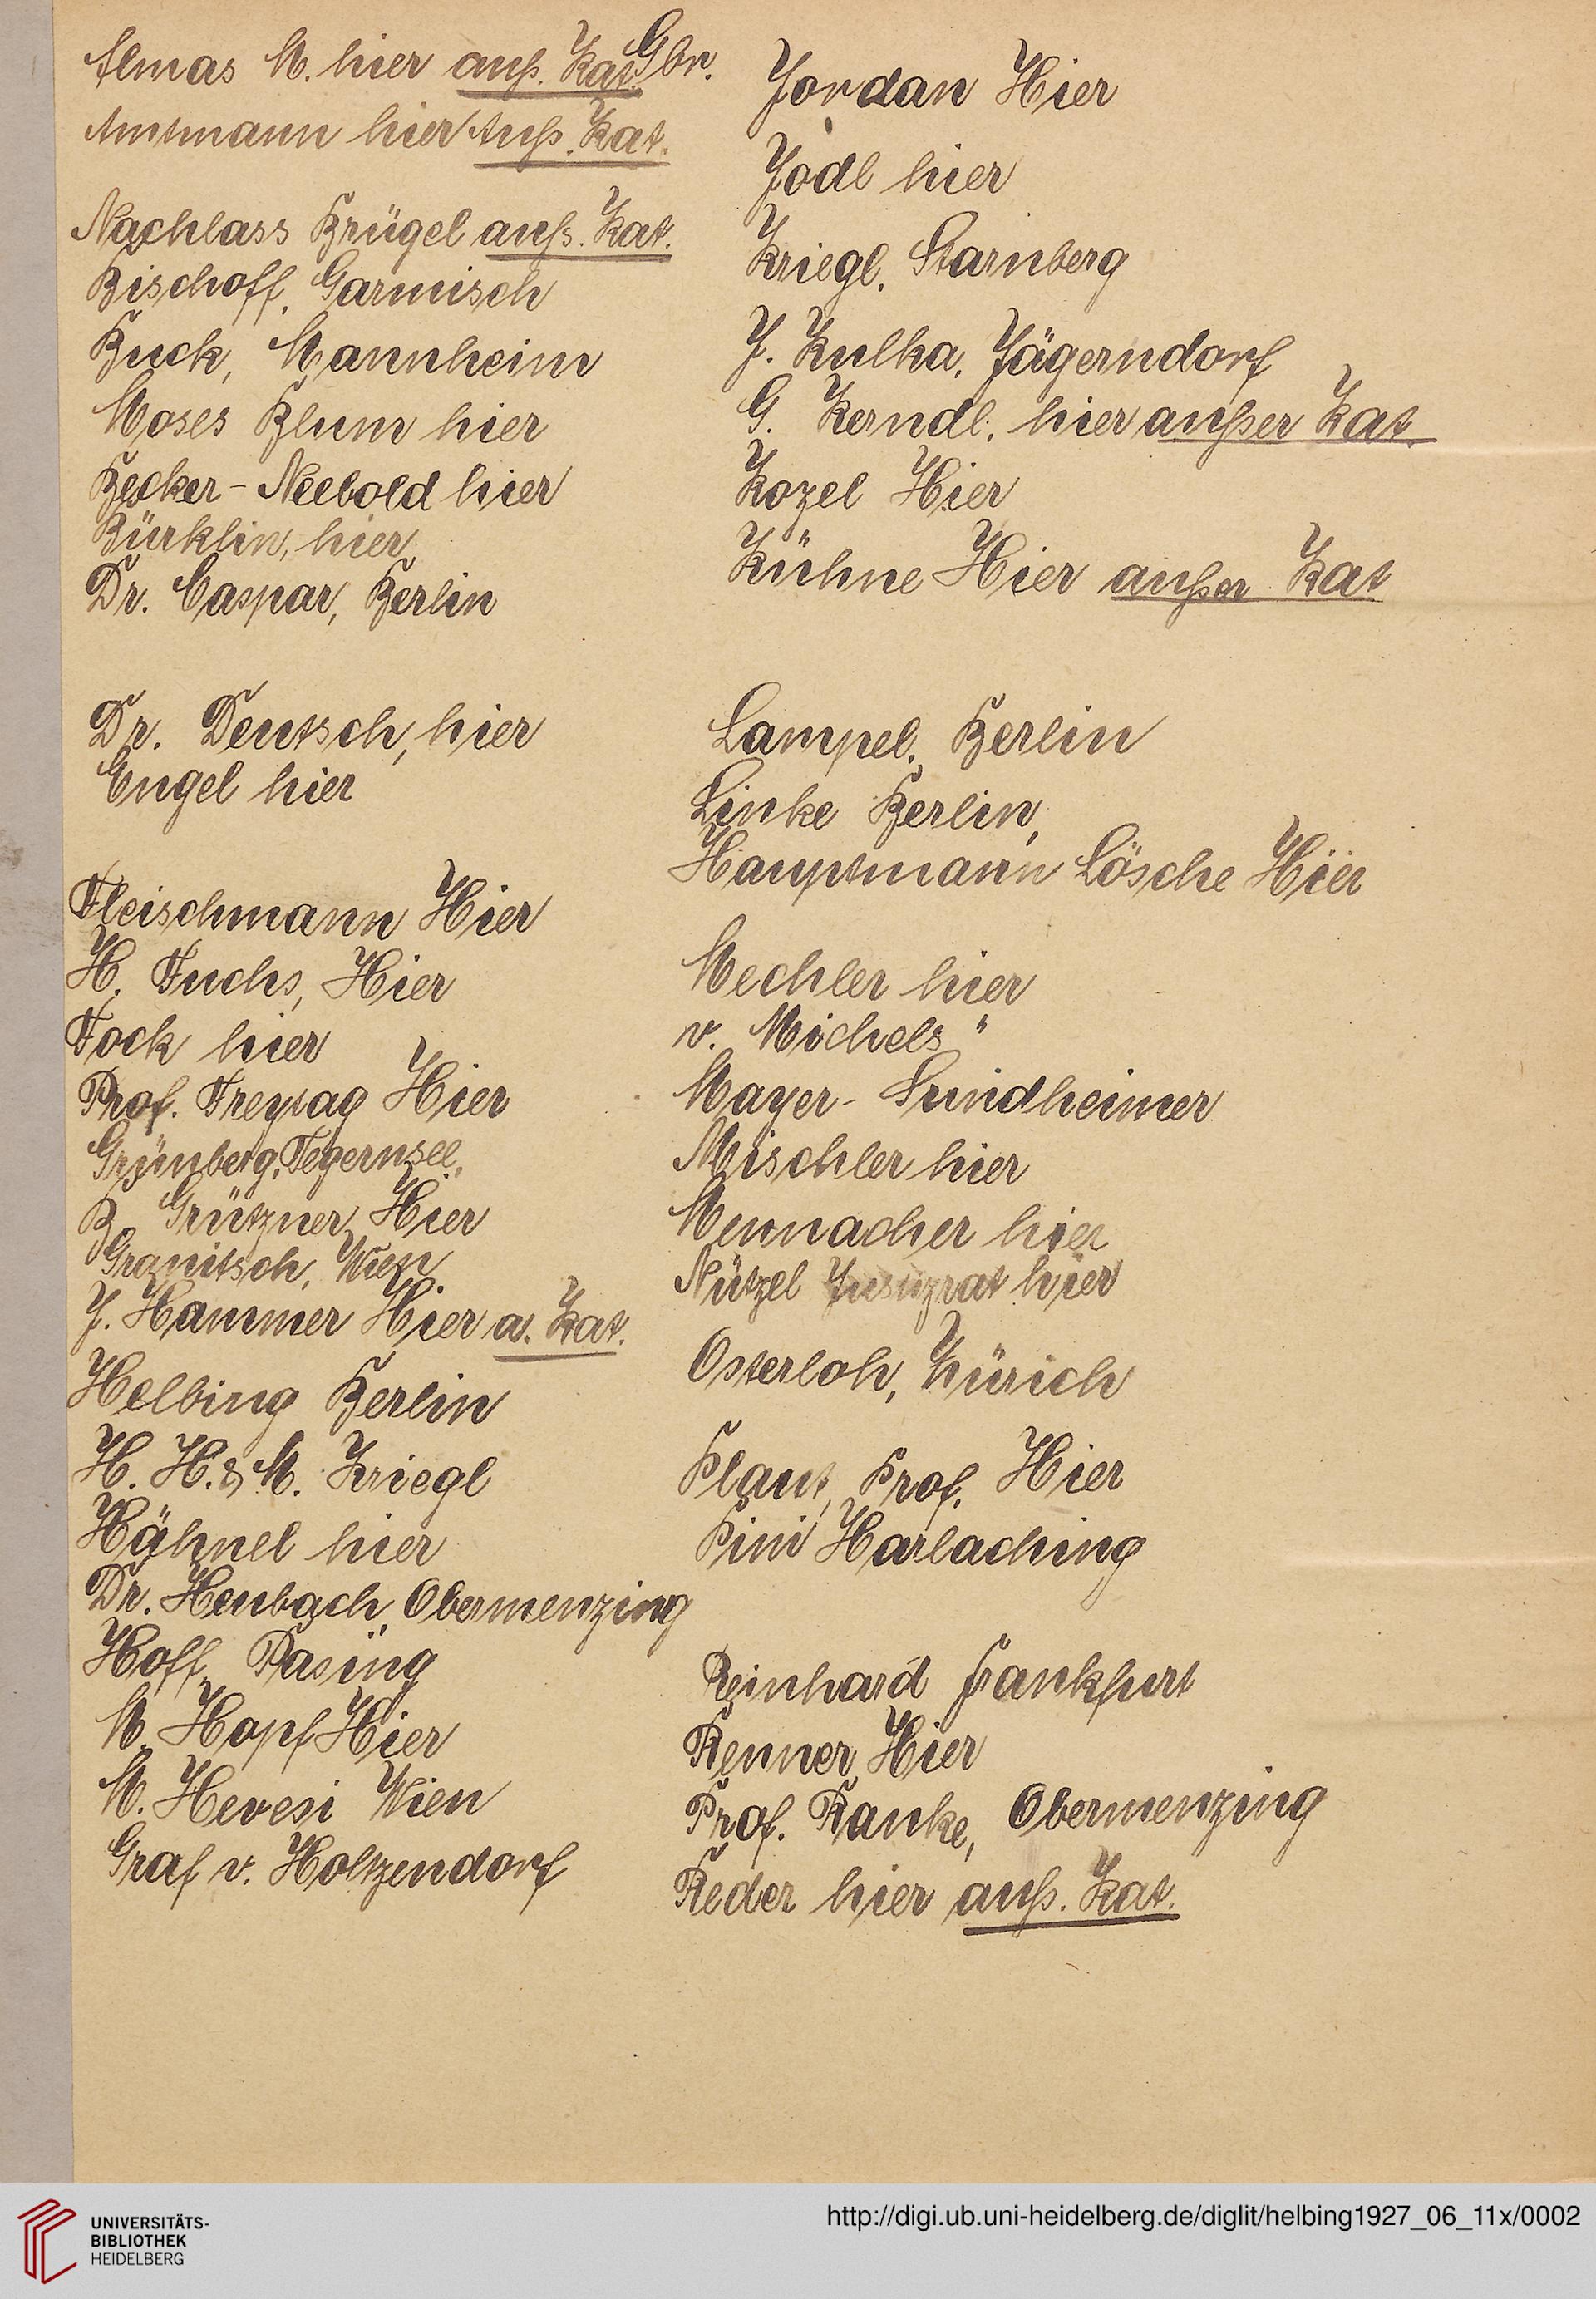 Almas M. hier auß. Kat. Gbr.
Amtmann hier Auß. Kat.
Nachlass Brügel auß. Kat.
Bischoff, Garmisch
Buck, Mannheim
Moses Blum hier
Becker-Neebold hier
Bürklin, hier
Dr. Caspar, Berlin
Dr. Deutsch, hier
Engel hier
Fleischmann Hier
H. Fuchs, Hier
Fock hier
Prof. Freytag Hier
Grünberg, Tegernsee,
B. Grützner, Hier
Granitsch, Wien.
J. Hammer Hier a. Kat.
Helbing Berlin
H. H. & M. Kriegl
Hähnel hier
Dr. Heubach Obermenzing
Hoff, Pasing
M. Hopf Hier
M. Hevesi Wien
Graf v. Holtzendorf
Jordan Hier
Jodl hier
Kriegl, Starnberg
J. Kulka, Jägerndorf
G. Kerndl, hier außer Kat.
Kozel Hier
Kühne Hier außer Kat
Lampel, Berlin
Linke Berlin,
Hauptmann Lösche Hier
Mechler hier
v. Michels "
Mayer-Sundheimer
Mischler hier
Mennacher hier
Nützel Justizrat hier
Osterloh, Zürich
Plaut, Prof. Hier
Pini Harlaching
Reinhard Frankfurt
Renner Hier
Prof. Ranke, Obermenzing
Reder hier auß. Kat.
UNIVERSITÄTS-
BIBLIOTHEK
HEIDELBERG
http://digi.ub.uni-heidelberg.de/diglit/helbing1927_06_11x/0002